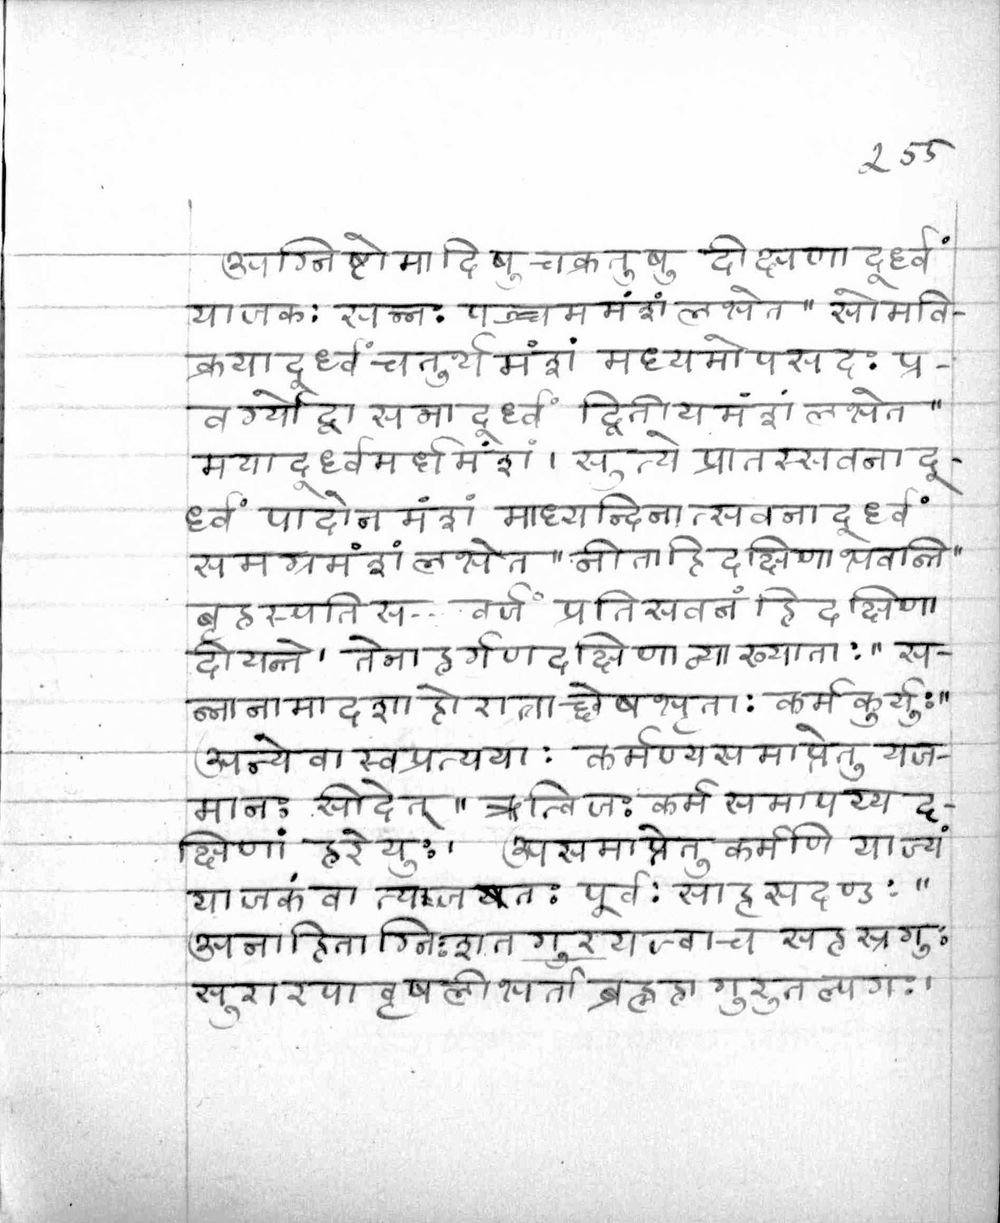 255
अग्निष्टोमादिषु चक्रतुषु दीक्षणादूर्ध्वं
याजकः सन्नः पञ्चममंशं लभेत" सोमवि-
क्रयादूर्ध्वं चतुर्थमंशं मध्यमोपसदः प्र-
वर्ग्योद्वासनादूर्ध्वं द्वितीयमंशं लभेत"
मयादूर्ध्वमर्धमंशं। सुत्ये प्रातस्सवनादू-
र्ध्वं पादोनमंशं माध्यन्दिनात्सवनादूर्ध्वं
समग्रमंशं लभेत "नीताहि दक्षिणा भवन्ति"
बृहस्पतिस-- वर्जं प्रतिसवनं हि दक्षिणा
दीयन्ते। तेनाहर्गणदक्षिणा व्याख्याताः" स-
न्नानामादशाहोरात्राच्छेषभृताः कर्म कुर्युः"
अन्ये वा स्वप्रत्ययाः कर्मण्यसमाप्तेतु यज-
मानः सीदेत्" ऋत्विजः कर्म समापय्य द-
क्षिणां हरेयुः। असमाप्तेतु कर्मणि याज्यं
याजकं वा त्यजतः पूर्वः साहसदण्डः"
अनाहिताग्निः शतगुरयज्वा च सहस्रगुः
सुरारपा वृषलीभर्ता ब्रह्महा गुरुतल्पगः।